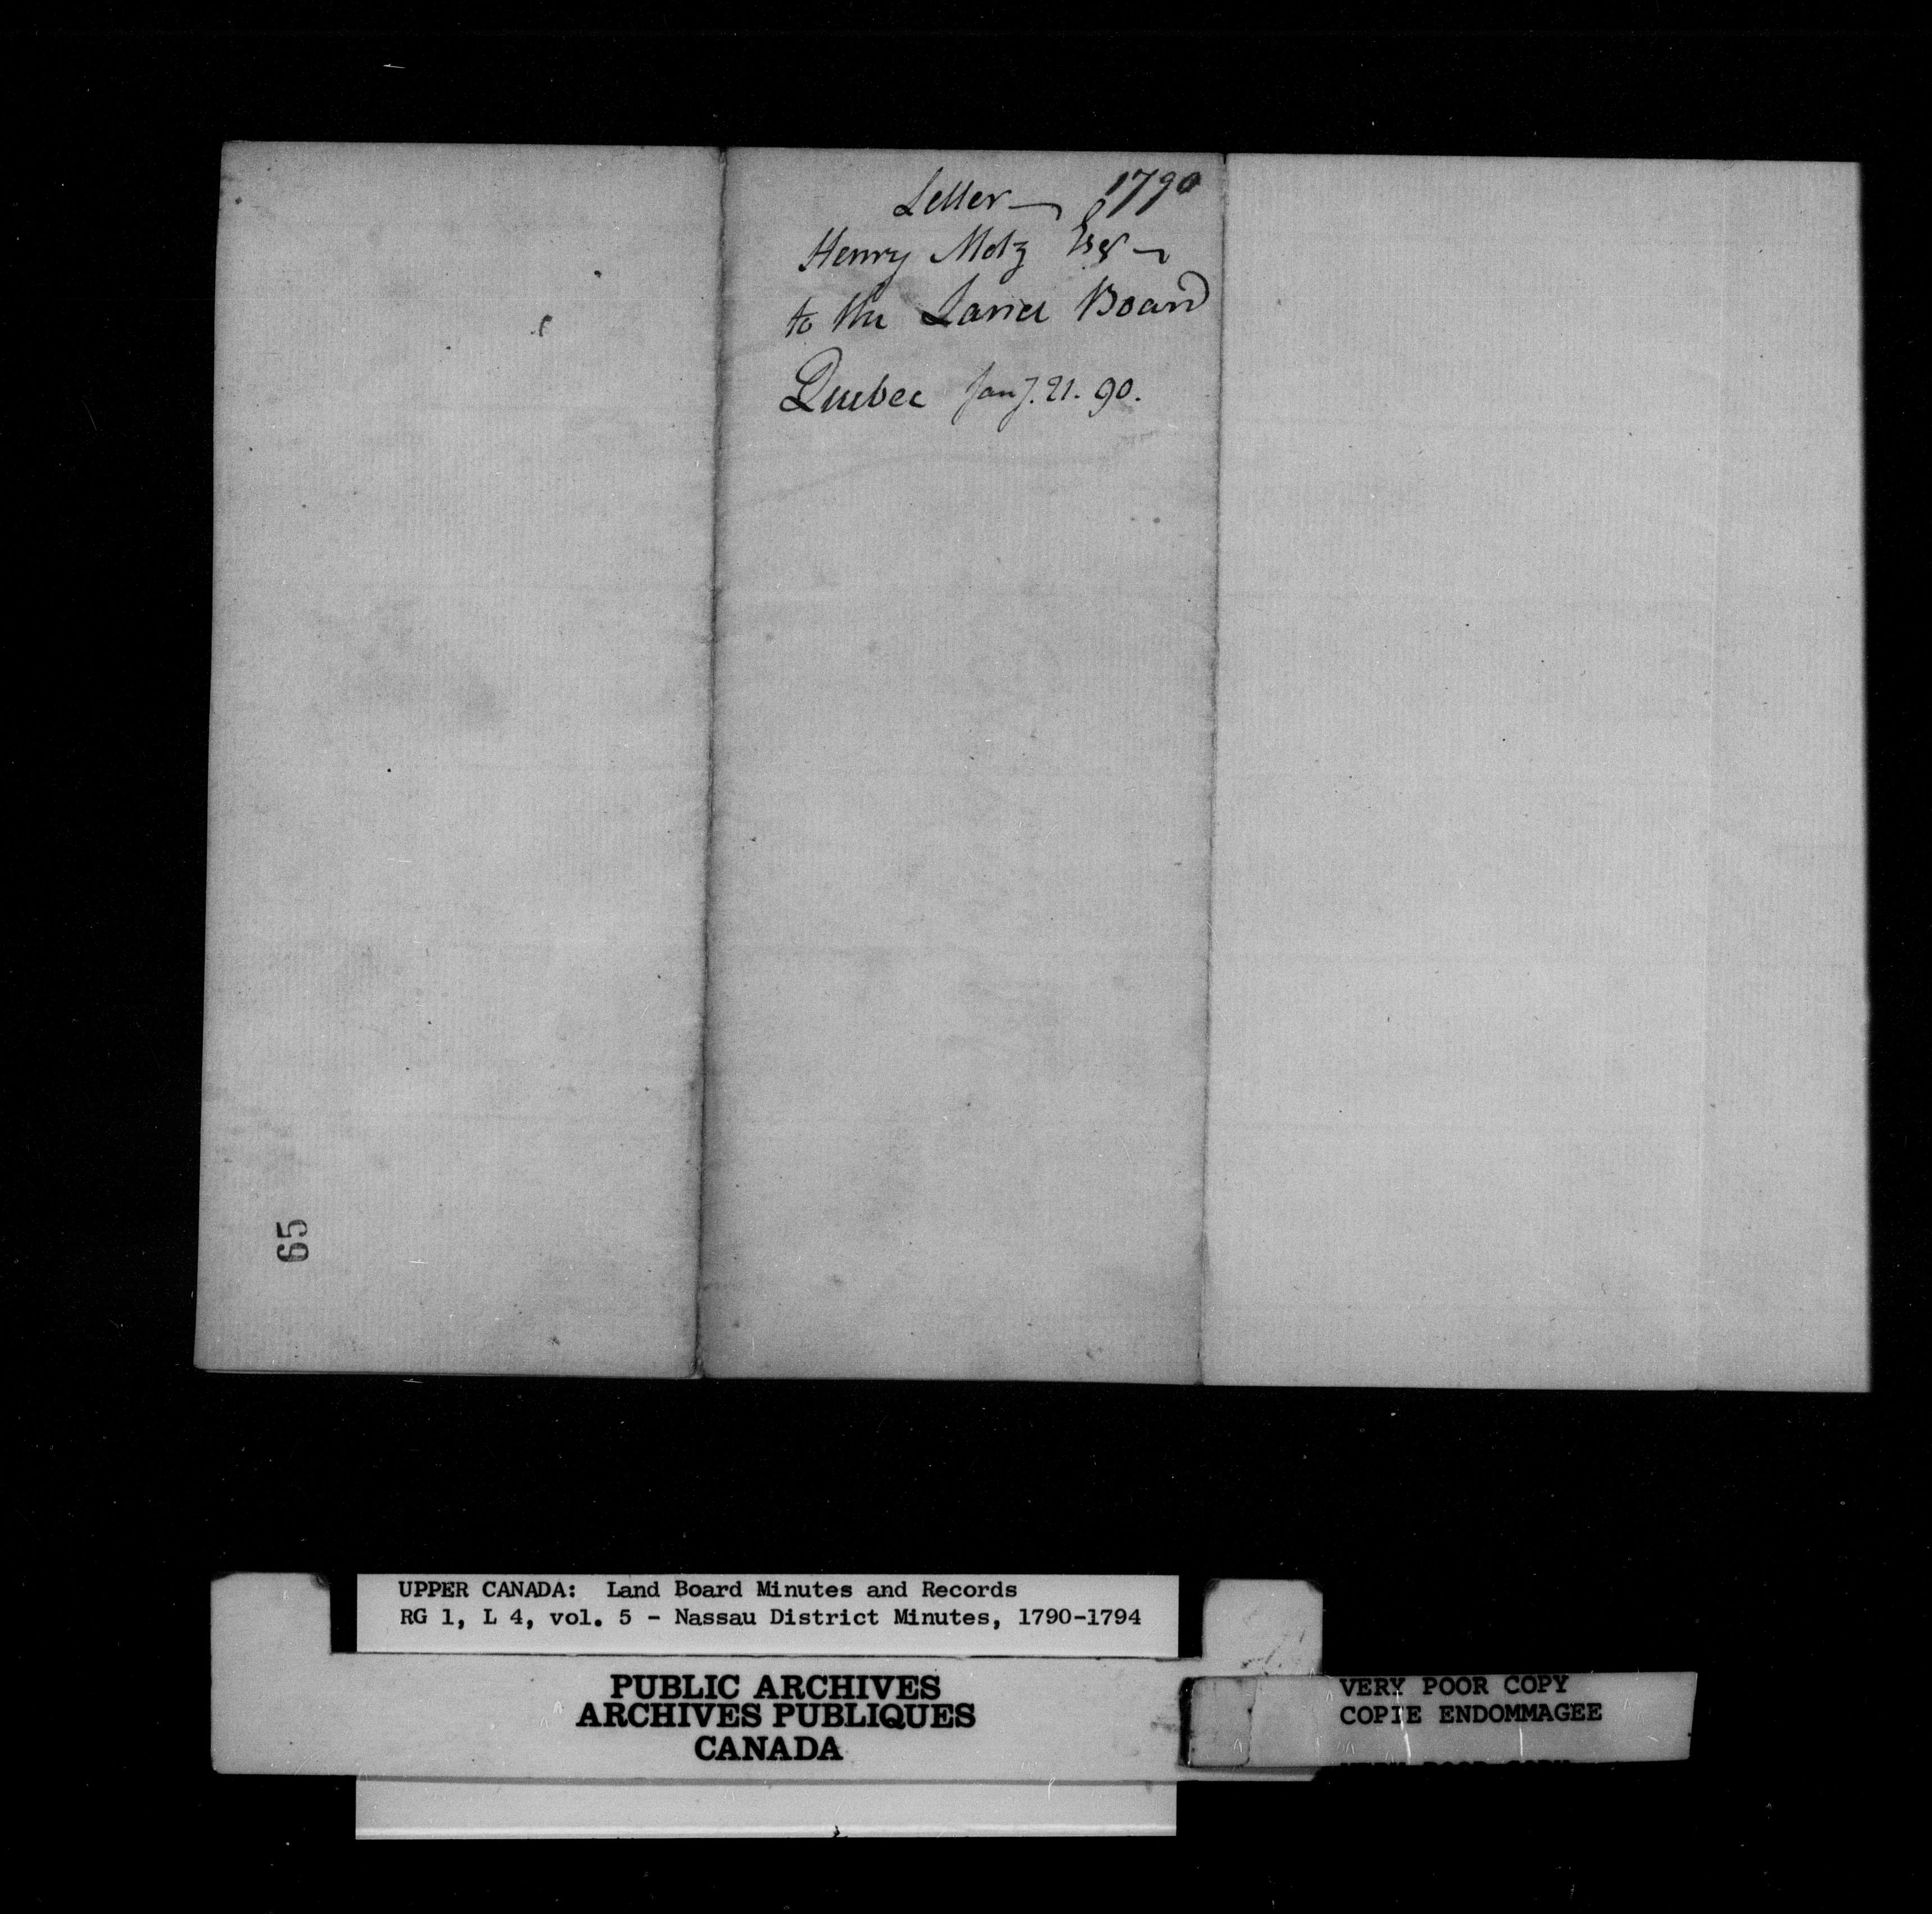 Letter — 1790
Henry Motz Esqr —
to the Land Board
Quebec Jany. 21. 90.
65
UPPER CANADA: Land Board Minutes and Records
RG 1, L 4, vol. 5 - Nassau District Minutes, 1790-1794
PUBLIC ARCHIVES
ARCHIVES PUBLIQUES
CANADA
VERY POOR COPY
COPIE ENDOMMAGEE